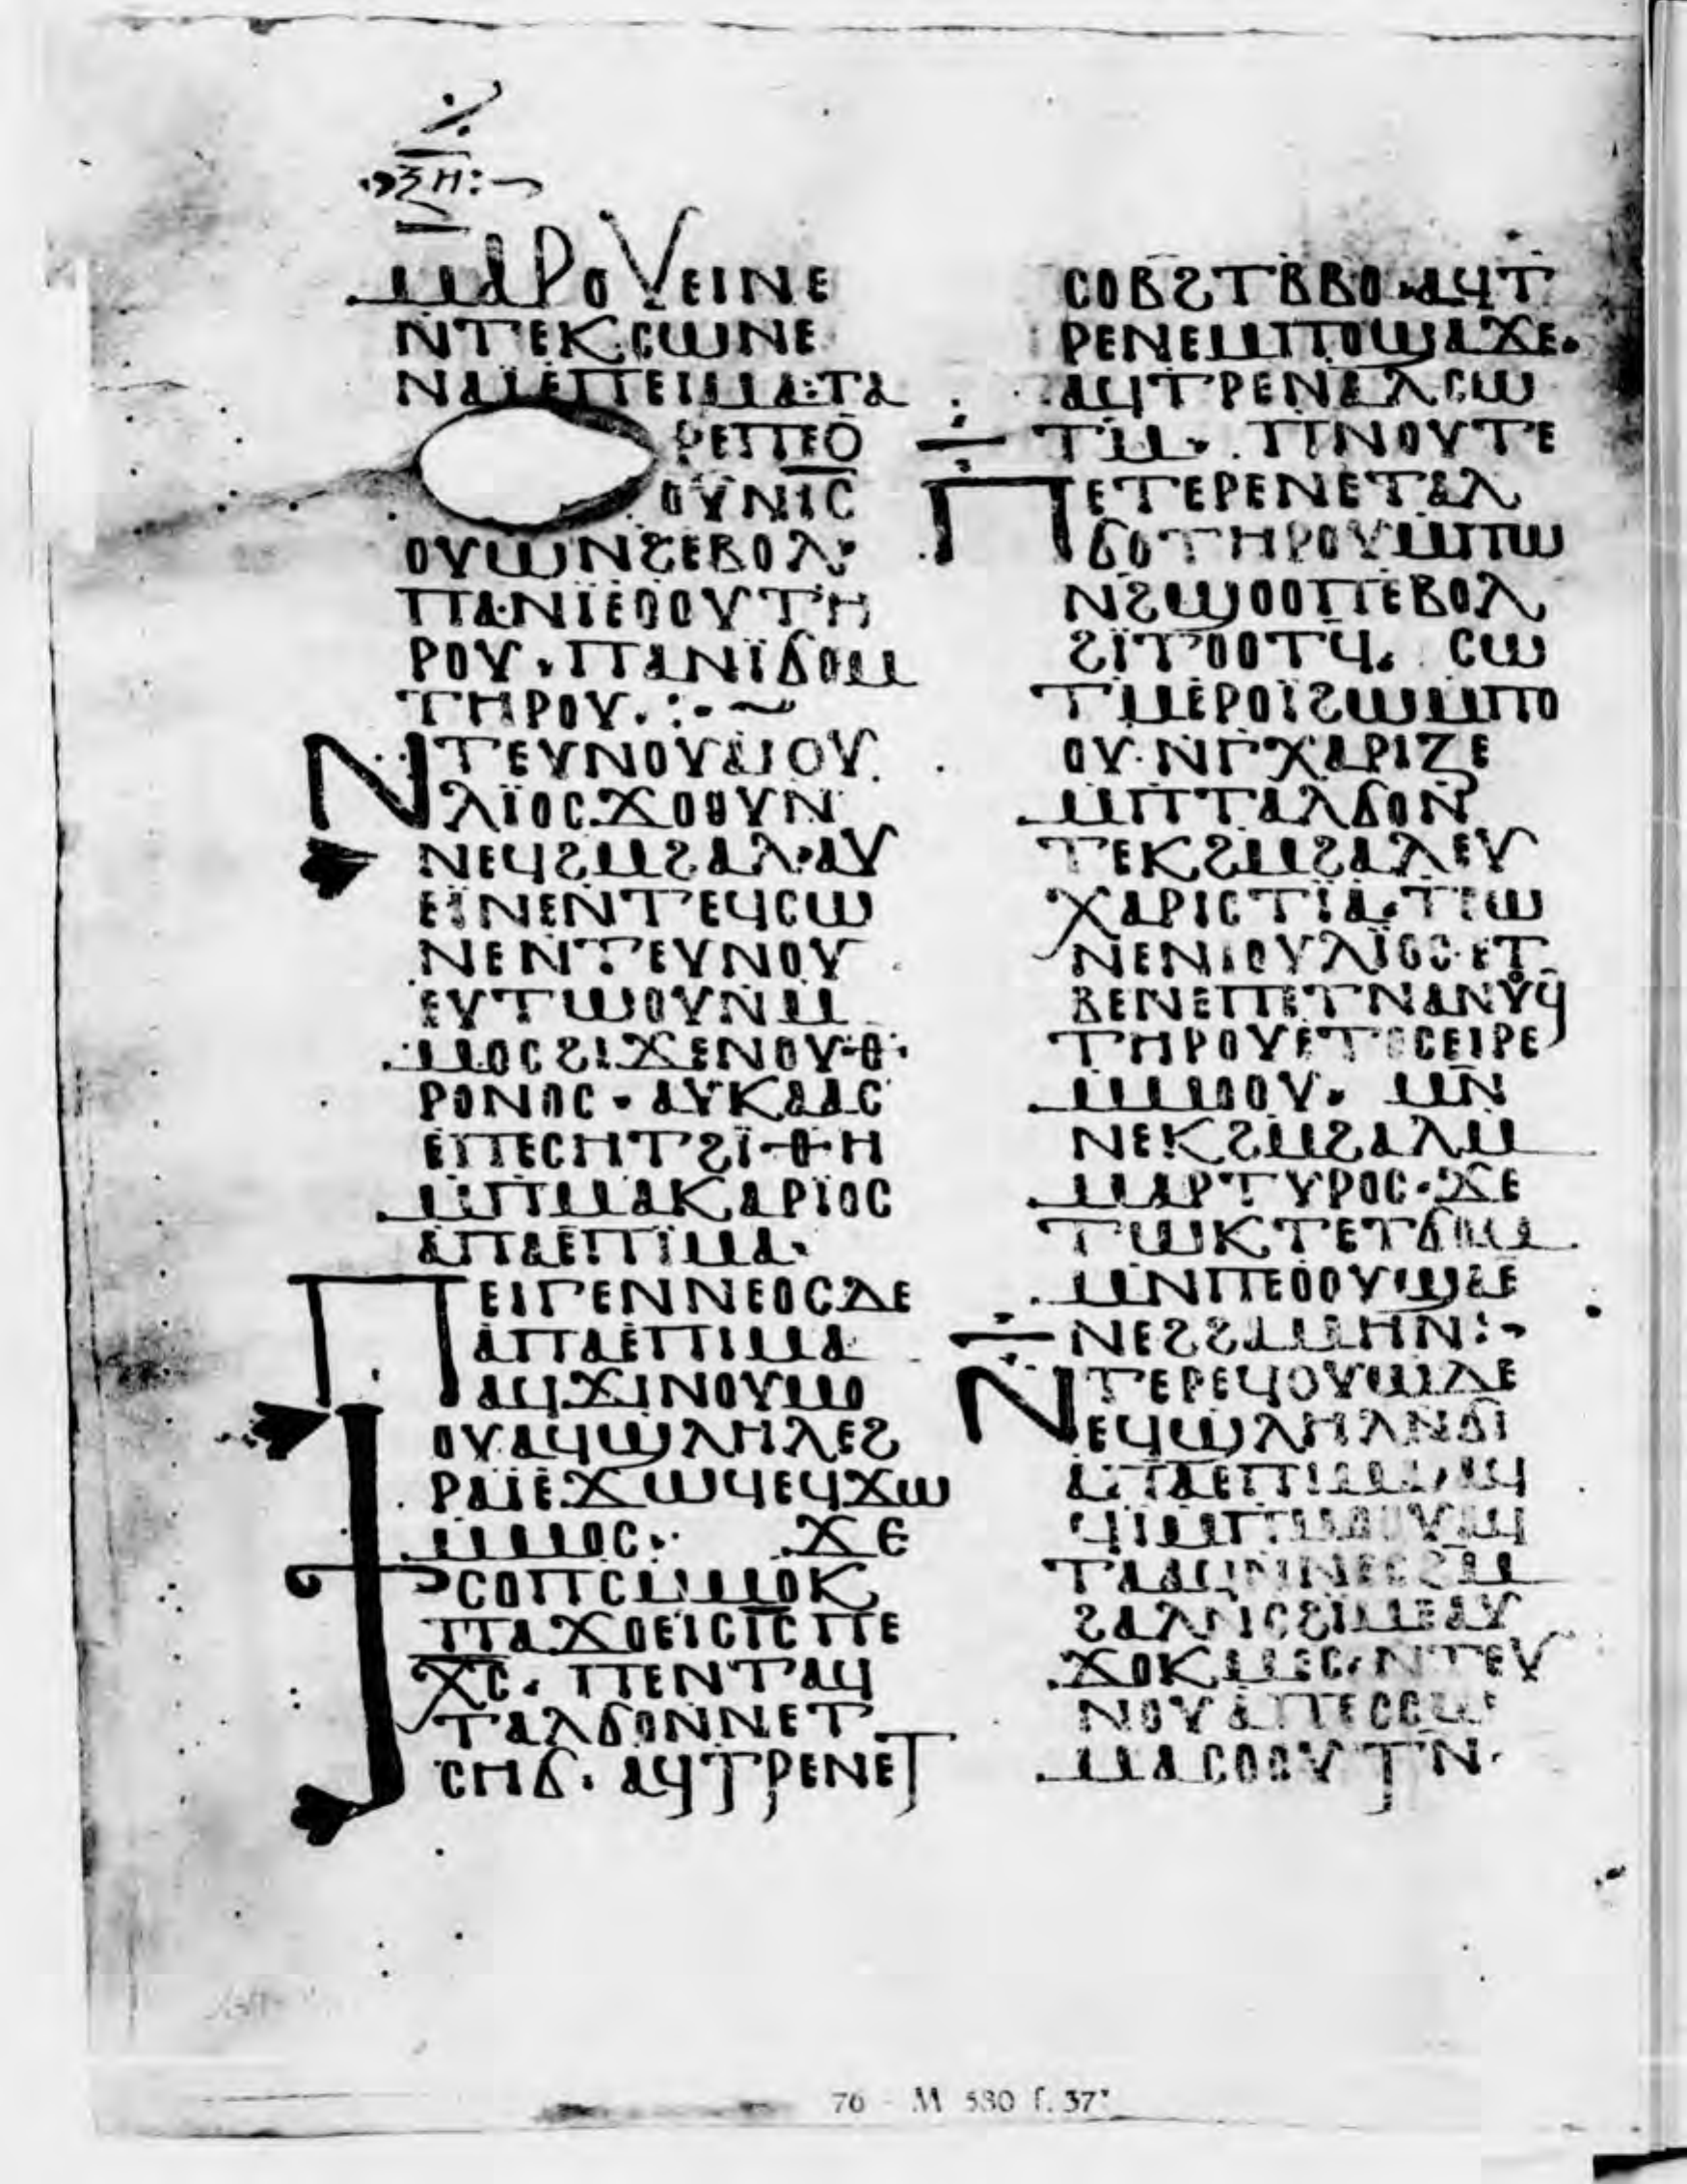 ⲝⲏ
ⲙⲁⲣⲟⲩⲉⲓⲛⲉ
ⲛⲧⲉⲕⲥⲱⲛⲉ
ⲛⲁⲓ̈ⲉⲡⲉⲓⲙⲁ·ⲧⲁ
ⲣⲉⲡⲉⲟ̅
ⲟⲩⲛⲓⲥ
ⲟⲩⲱⲛϩⲉⲃⲟⲗ·
ⲡⲁⲛⲓ̈ⲉⲟⲟⲩⲧⲏ
ⲣⲟⲩ·ⲡⲁⲛⲓ̈ϭⲟⲙ
ⲧⲏⲣⲟⲩ·:·~
ⲛⲧⲉⲩⲛⲟⲩⲁⲓ̈ⲟⲩ
ⲗⲓ̈ⲟⲥϫⲟⲟⲩⲛ
ⲛⲉϥϩⲙϩⲁⲗ·ⲁⲩ
ⲉⲓⲛⲉⲛⲧⲉϥⲥⲱ
ⲛⲉⲛⲧⲉⲩⲛⲟⲩ
ⲉⲩⲧⲱⲟⲩⲛⲙ
ⲙⲟⲥϩⲓϫⲉⲛⲟⲩⲑ
ⲣⲟⲛⲟⲥ·ⲁⲩⲕⲁⲁⲥ
ⲉⲡⲉⲥⲏⲧϩⲓ̈ⲑⲏ
ⲙⲡⲙⲁⲕⲁⲣⲓⲟⲥ
ⲁⲡⲁⲉⲡⲓ̈ⲙⲁ·
ⲡⲉⲓⲅⲉⲛⲛⲉⲟⲥⲇⲉ
ⲁⲡⲁⲉⲡⲓⲙⲁ
ⲁϥϫⲓⲛⲟⲩⲙⲟ
ⲟⲩⲁϥϣⲗⲏⲗⲉϩ
ⲣⲁⲓ̈ⲉϫⲱϥⲉϥϫⲱ
ⲙⲙⲟⲥ· ϫⲉ
ϯⲥⲟⲡⲥⲙⲙⲟⲕ
ⲡⲁϫⲟⲉⲓⲥⲓ̅ⲥ̅ⲡⲉ
ⲭ̅ⲥ̅·ⲡⲉⲛⲧⲁϥ
ⲧⲁⲗϭⲟⲛⲛⲉⲧ
ⲥⲏϭ·ⲁϥⲧⲣⲉⲛⲉⲧ
ⲥⲟⲃϩⲧⲃⲃⲟ·ⲁϥⲧ
ⲣⲉⲛⲉⲙⲡⲟϣⲁϫⲉ·
ⲁϥⲧⲣⲉⲛⲁⲗⲥⲱ
ⲧⲙ·ⲡⲛⲟⲩⲧⲉ
ⲡⲉⲧⲉⲣⲉⲛⲉⲧⲁⲗ
ϭⲟⲧⲏⲣⲟⲩⲙⲡⲱ
ⲛϩϣⲟⲟⲡⲉⲃⲟⲗ
ϩⲓ̈ⲧⲟⲟⲧϥ· ⲥⲱ
ⲧⲙⲉⲣⲟⲓ̈ϩⲱⲙⲡⲟ
ⲟⲩ·ⲛⲅⲭⲁⲣⲓⲍⲉ
ⲙⲡⲧⲁⲗϭⲟⲛ
ⲧⲉⲕϩⲙϩⲁⲗⲉⲩ
ⲭⲁⲣⲓⲥⲧⲓ̈ⲁ·ⲧⲥⲱ
ⲛⲉⲛⲓⲟⲩⲗⲓ̈ⲟⲥ·ⲉⲧ
ⲃⲉⲛⲉⲡⲉⲧⲛⲁⲛⲟⲩϥ
ⲧⲏⲣⲟⲩⲉⲧϥⲉⲓⲣⲉ
ⲙⲙⲟⲟⲩ· ⲙⲛ
ⲛⲉⲕϩⲙϩⲁⲗⲙ
ⲙⲁⲣⲧⲩⲣⲟⲥ·ϫⲉ
ⲧⲱⲕⲧⲉⲧϭⲟⲙ
ⲙⲛⲡⲉⲟⲟⲩϣⲁⲉ
ⲛⲉϩϩⲁⲙⲏⲛ:·
ⲛⲧⲉⲣⲉϥⲟⲩⲱⲇⲉ
ⲉϥϣⲗⲏⲗⲛϭⲓ
ⲁⲡⲁⲉⲡⲓⲙⲁ·ⲁϥ
ϥⲓⲙⲡⲙⲟⲟⲩⲁϥ
ⲧⲁⲁϥⲛⲛⲉⲥϩⲙ
ϩⲁⲗⲛⲥϩⲓⲙⲉⲁⲩ
ϫⲟⲕⲙⲉⲥ·ⲛⲧⲉⲩ
ⲛⲟⲩⲁⲡⲉⲥⲥⲱ
ⲙⲁⲥⲟⲟⲩⲧⲛ·
76 - M 580 f. 37ᵛ